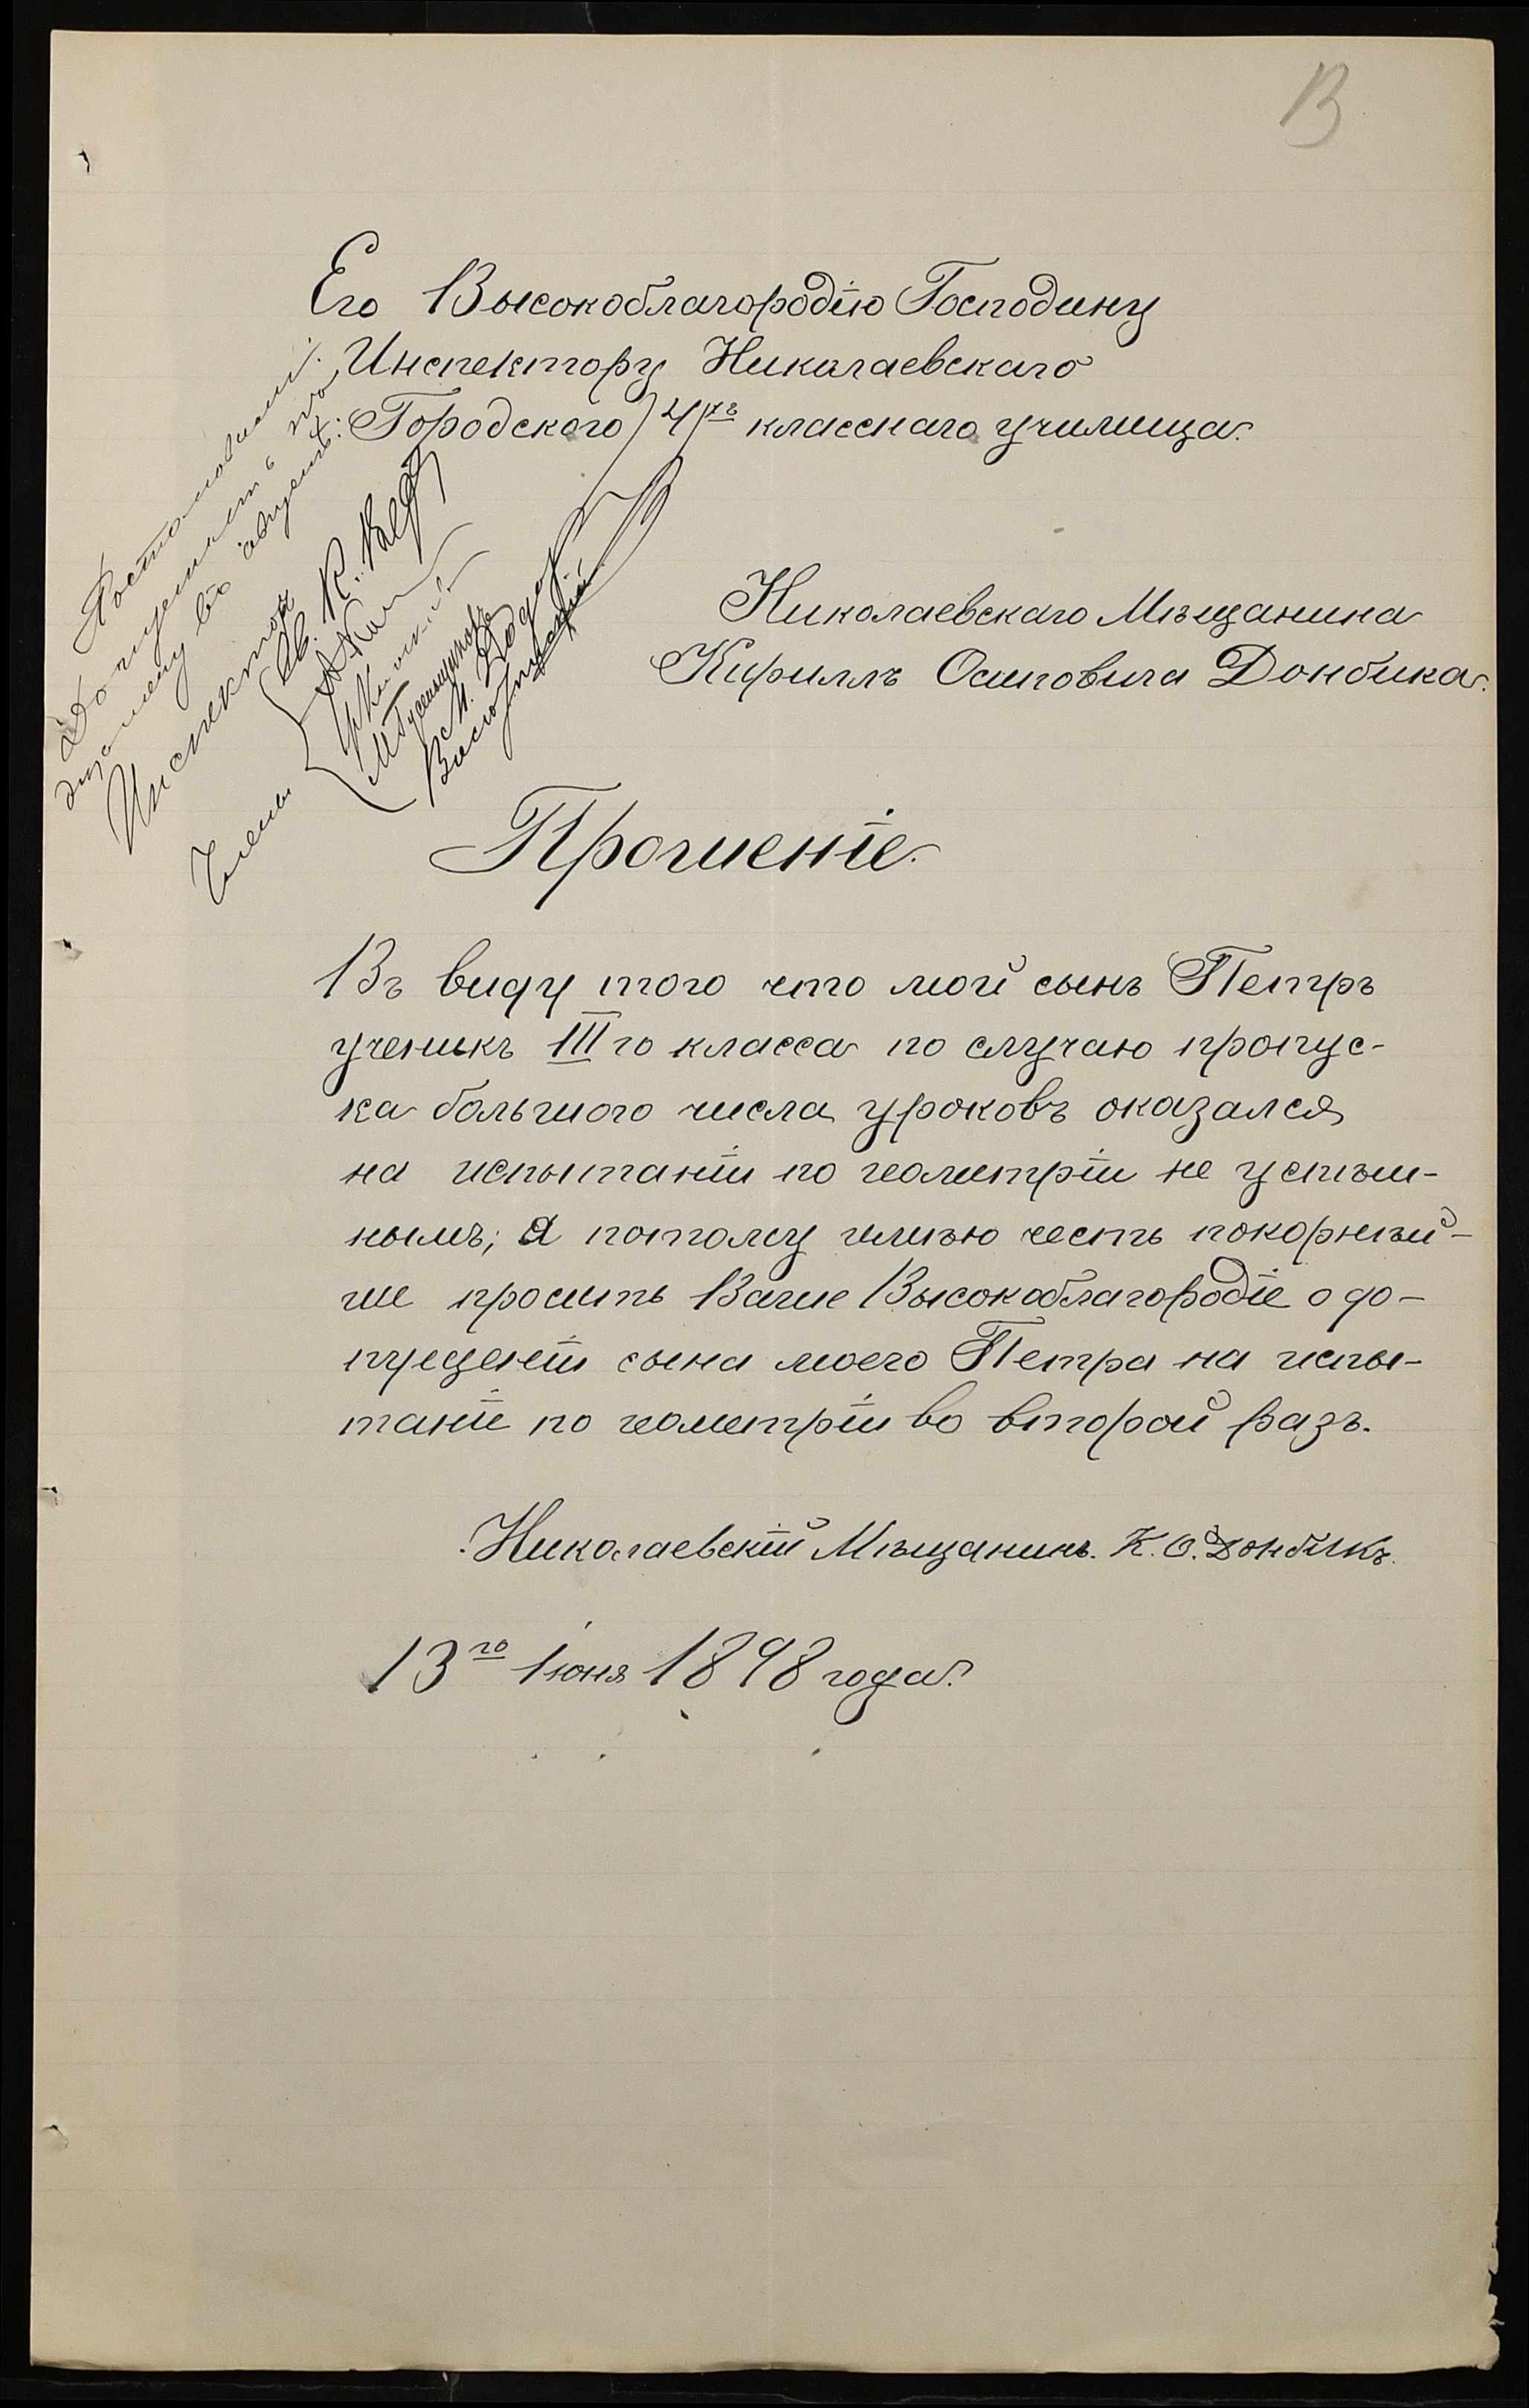 В
Его Высокоблагородію Господину
Инспектору Николаевскаго
Городского 4хъ класснаго училища.
Постановили:
Допустить по
экзамену въ августѣ.
Инспекторъ
Члены
Николаевскаго Мѣщанина
Кириллъ Осиповича Донбика.
Прошеніе.
Въ виду того что мой сынъ Петръ
ученикъ III го класса по случаю пропус-
ка большого числа уроковъ оказался
на испытаніи по геометріи не успѣш-
нымъ; а потому имѣю честь покорнѣй-
ше просить Ваше Высокоблагородіе о до-
пущеніи сына моего Петра на испы-
таніе по геометріи во второй разъ.
Николаевскій Мѣщанинъ. К. О. Донбикъ.
13го Іюня 1898 года.